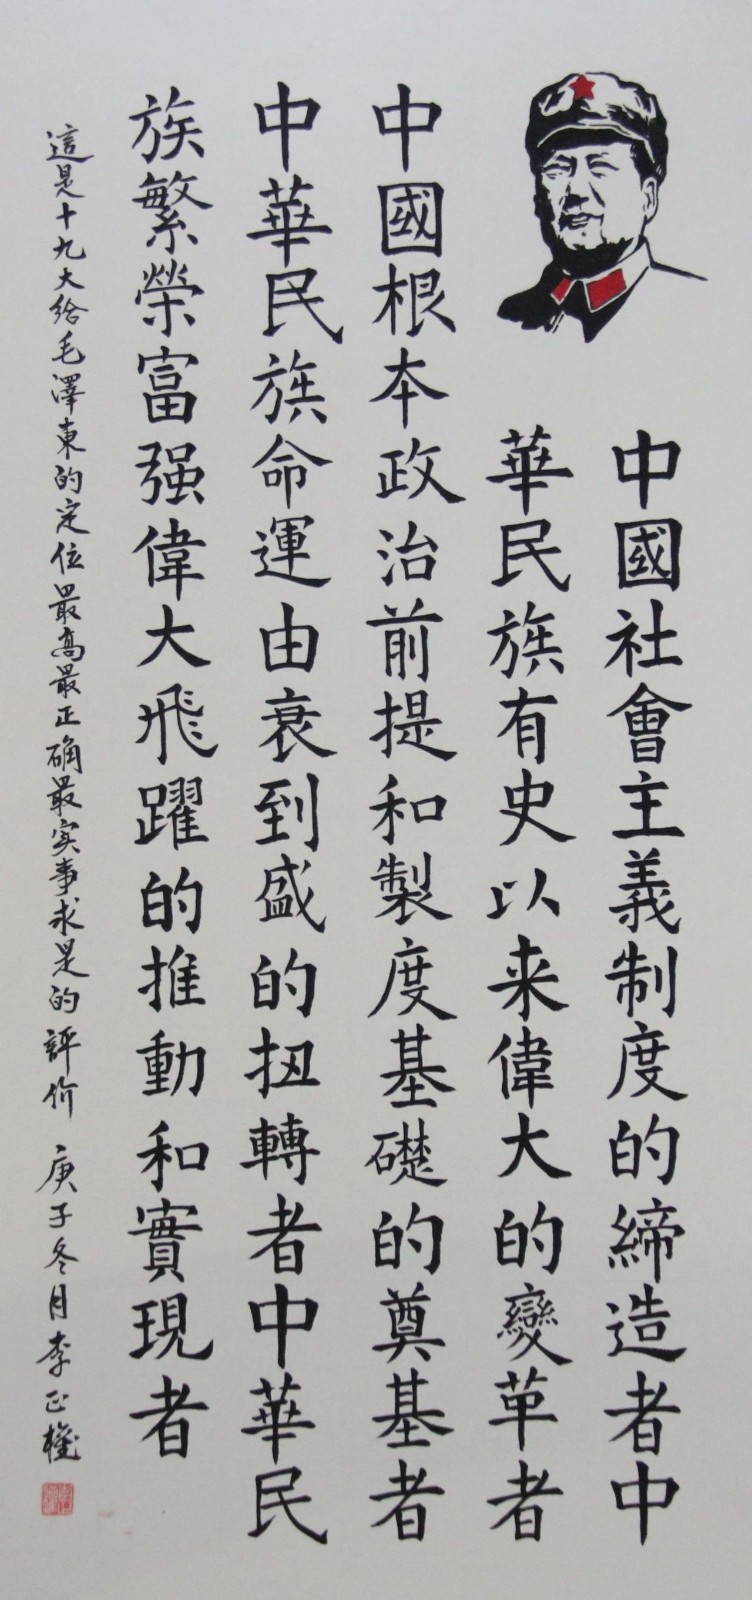 中國社會主義制度的締造者中
華民族有史以来偉大的變革者
中國根本政治前提和製度基礎的奠基者
中華民族命運由衰到盛的扭轉者中華民
族繁榮富强偉大飛躍的推動和實現者
這是十九大给毛澤東的定位最高最正确最实事求是的評价
庚子冬月李正權